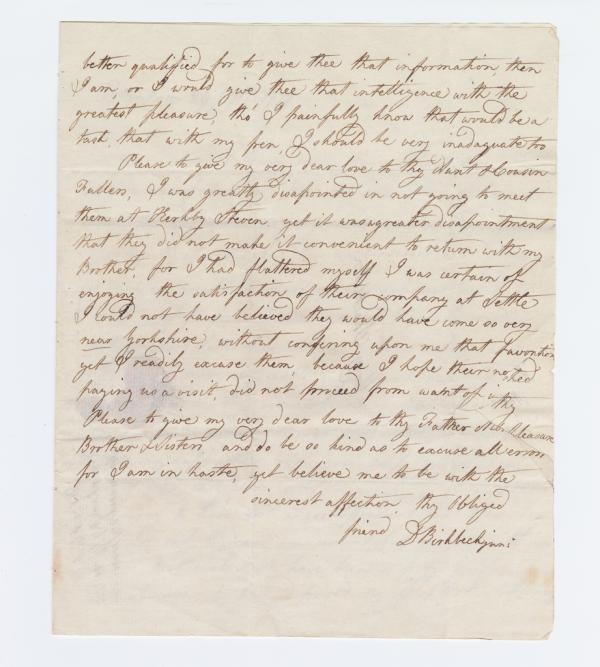 better qualified for to give thee that information, then
I am, or I would give thee that intelligence with the
greatest pleasure, tho' I painfully know that would be a
task, that with my pen, I should be very inadaquate too
Please to give my very dear love to thy Aunt & Cousin
Fallers, I was greatly disapointed in not going to meet
them at Kerkby Steven. yet it was a greater disapointment
that they did not make it convenient to return with my
Brother, for I had flattered myself I was certain of
enjoying the satisfaction of their company at Settle
I could not have believed they would have come so very
near Yorkshire, without confering upon me that favor
yet I readily excuse them, because I hope their not
paying us a visit, did not proceed from want of
Please to give my very dear love to thy Father pleasure
Brother & Sister, and do be so kind as to excuse all errors
for I am in haste, yet believe me to be with the
sincerest affection, thy obliged
friend D Birkbeck junr: